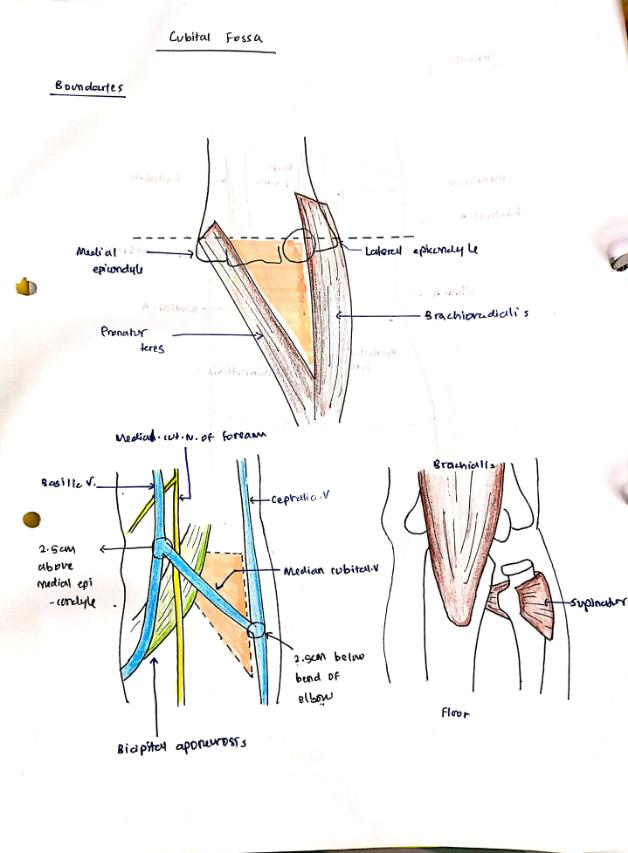 Cubital Fossa
Boundaries
Medial
epicondyle
Lateral epicondyle
Pronatur
teres
Brachioradialis
Medial.cut.N.of forearm
Basilic V.
Cephalic.V
2.5cm
above
medial epi
-condyle
Median cubital.V
2.5cm below
bend of
elbow
Bicipital aponeurosis
Brachialis
Supinator
Floor